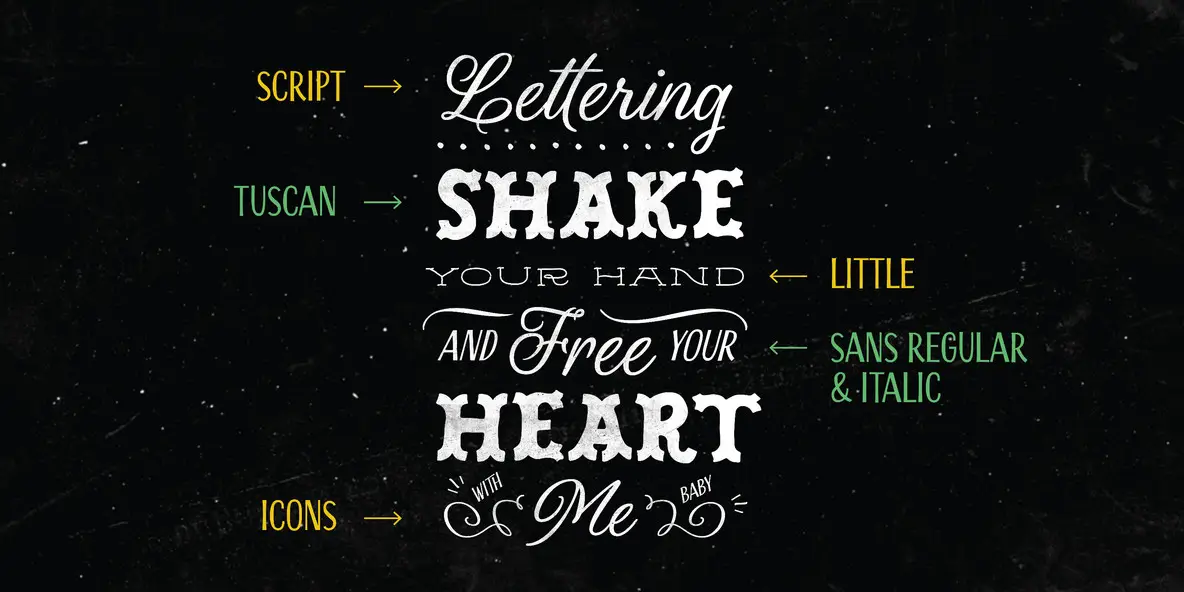 SCRIPT
Lettering
TUSCAN
SHAKE
YOUR HAND
LITTLE
AND Free YOUR
SANS REGULAR
& ITALIC
HEART
ICONS
WITH Me BABY